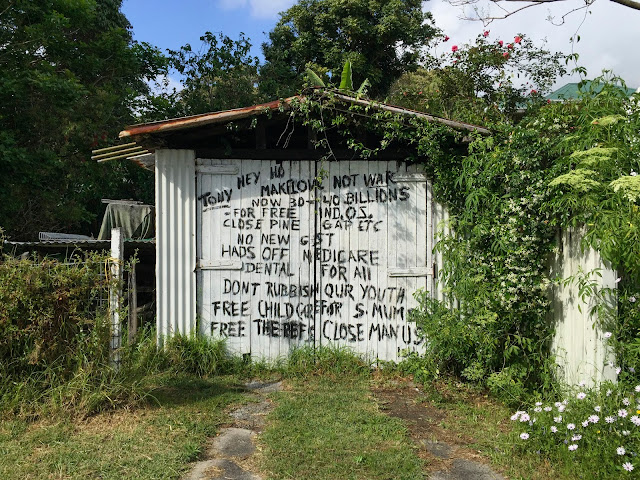 HEY HO
TONY MAKE LOVE NOT WAR
NOW 30-40 BILLIONS
-FOR FREE IND.OS.
CLOSE PINE GAP ETC
NO NEW GST
HADS OFF MEDICARE
DENTAL FOR ALL
DONT RUBBISH OUR YOUTH
FREE CHILD CARE FOR S. MUM
FREE THE REFS CLOSE MANUS